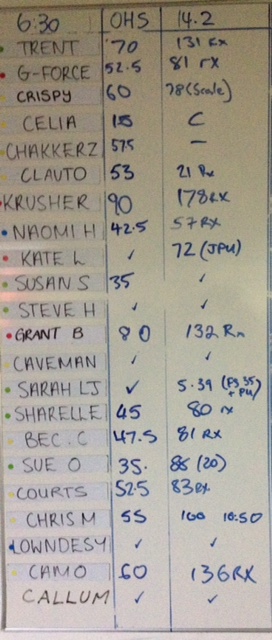 6:30 OHS 14.2
TRENT 70 131 RX
G-FORCE 52.5 81 rx
CRISPY 60 78 (Scale)
CELIA 15 C
CHAKKERZ 575 –
CLAUTO 53 21 Rx
KRUSHER 90 178RX
NAOMI H 42.5 57RX
KATE L ✓ 72 (JPU)
SUSAN S 35 ✓
STEVE H ✓ ✓
GRANT B 80 132 Rx
CAVEMAN ✓ ✓
SARAH LJ ✓ 5.39 (FS 35 + PU)
SHARELLE 45 80 rx
BEC.C 47.5 81 RX
SUE O 35. 86 (20)
COURTS 52.5 83RX
CHRIS M 55 100 10.50
LOWNDESY ✓ ✓
CAMO 60 136RX
CALLUM ✓ ✓